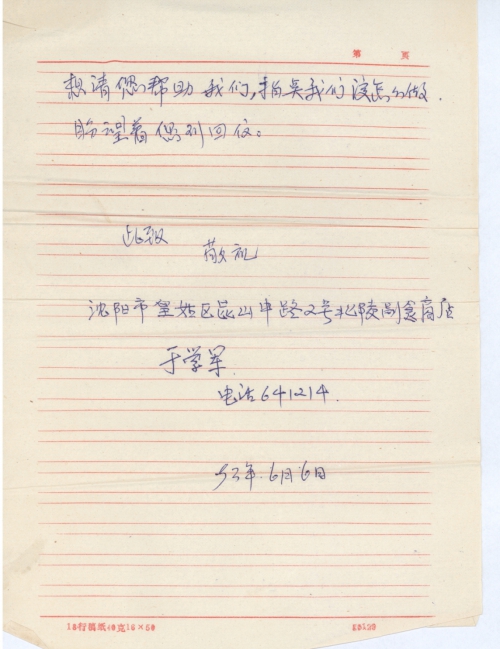 第 页
想请您帮助我们,指点我们该怎么做.
盼望着您的回信。
此致
敬礼
沈阳市皇姑区昆山中路2号北陵副食商店
于学军.
电话641214.
年.6月6日
18行稿纸40克16×50